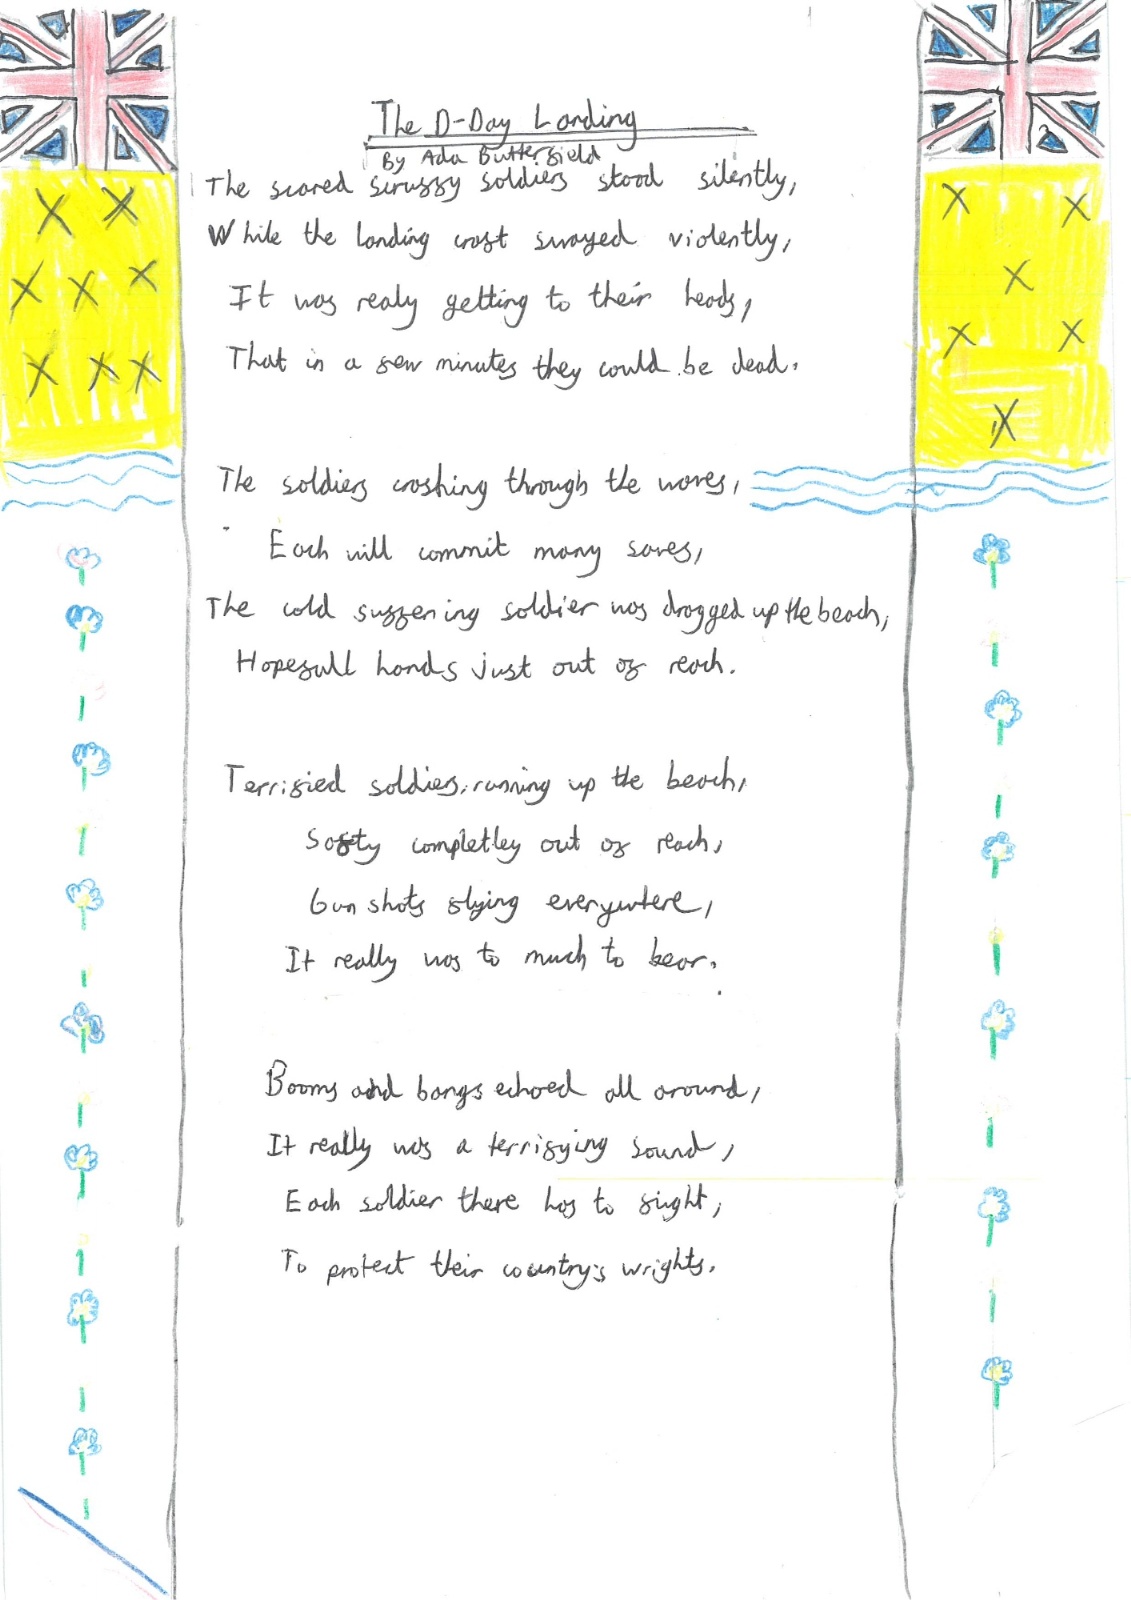 The D-Day Landing
By Ada Butterfield
The scared scruffy soldiers stood silently,
While the landing craft swayed violently,
It was realy getting to their heads,
That in a few minutes they could be dead.
The soldiers crashing through the waves,
Each will commit many saves,
The cold suffering soldier was dragged up the beach,
Hopefull hands just out of reach.
Terrified soldiers, running up the beach,
Safty completley out of reach,
Gun shots flying everywhere,
It really was to much to bear.
Booms and bangs echoed all around,
It really was a terrifying sound,
Each soldier there has to fight,
To protect their country's wrights.